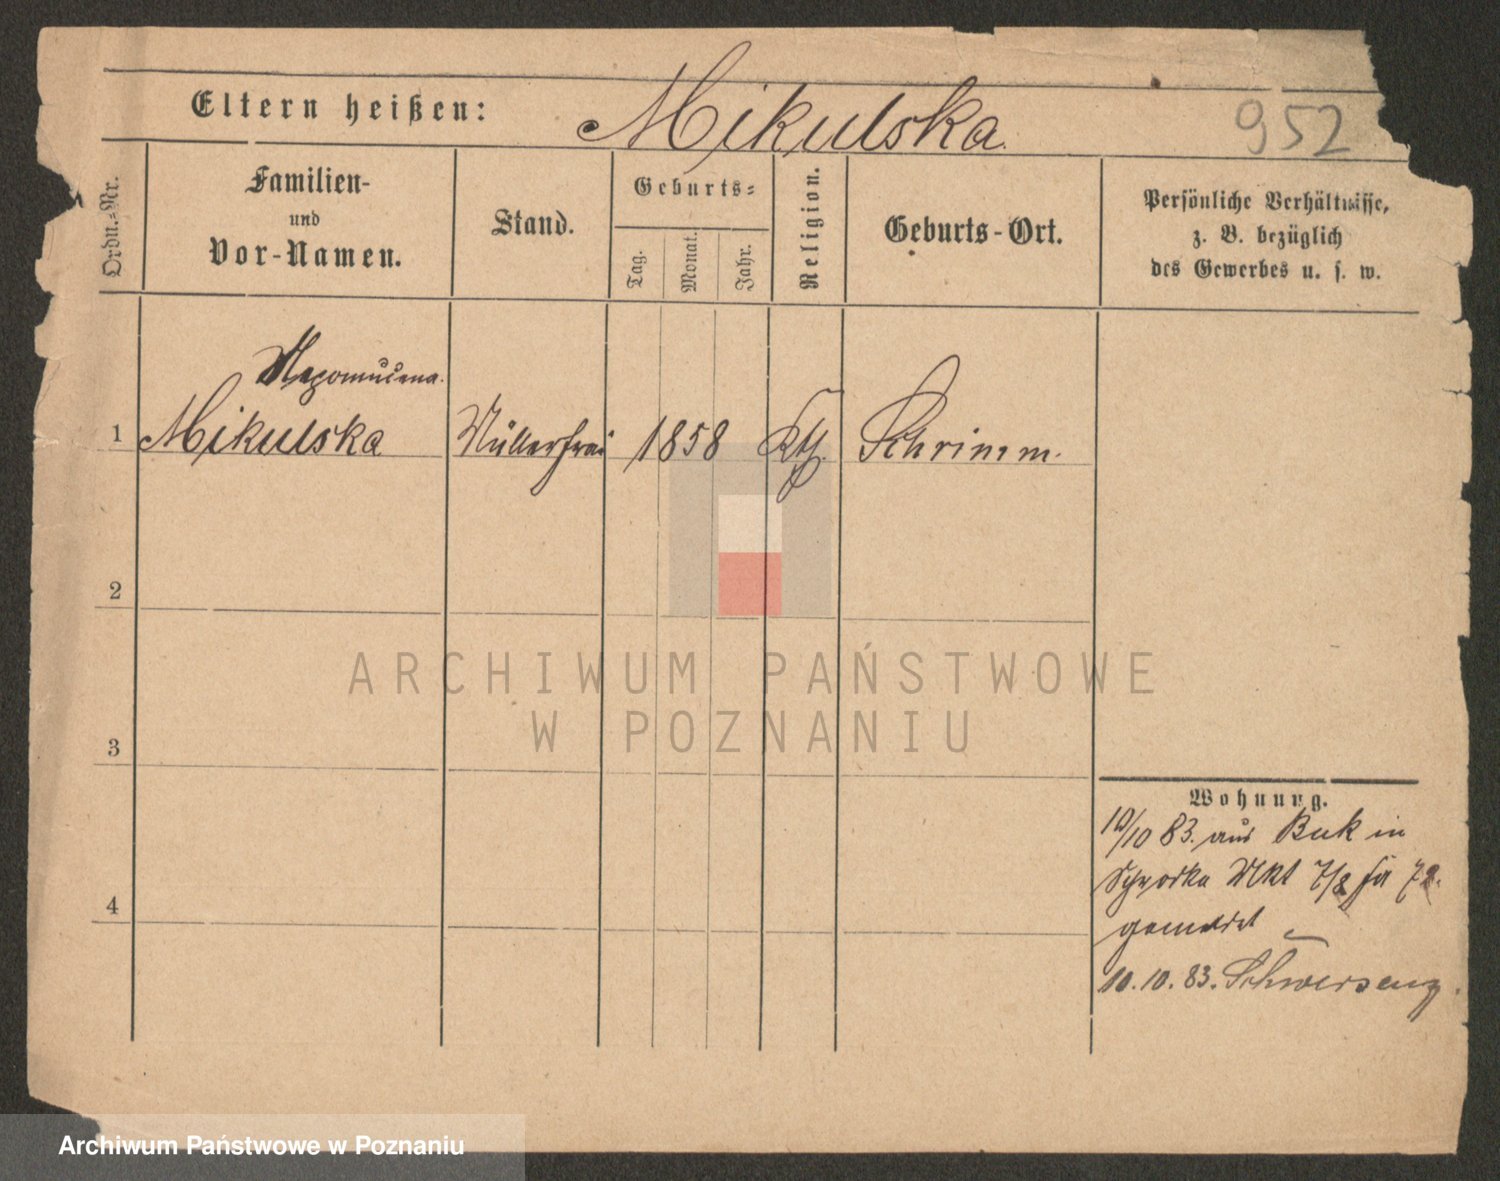 Eltern heißen: Mikulska. 952
Ordn.-Nr.
Familien-
und
Vor-Namen.
Stand.
Geburts-
Tag.
Monat.
Jahr.
Religion.
Geburts-Ort.
Persönliche Verhältnisse,
z. B. bezüglich
des Gewerbes u. s. w.
Nepomucena.
1 Mikulska Müllerfrau 1858 Kth. Schrimm.
2
ARCHIWUM PAŃSTWOWE
W POZNANIU
3
4
Wohnung.
10/10 83. aus Buk in
Schrodka Mkt 7/8
gemeldet
10. 10. 83. Schwersenz.
Archiwum Państwowe w Poznaniu